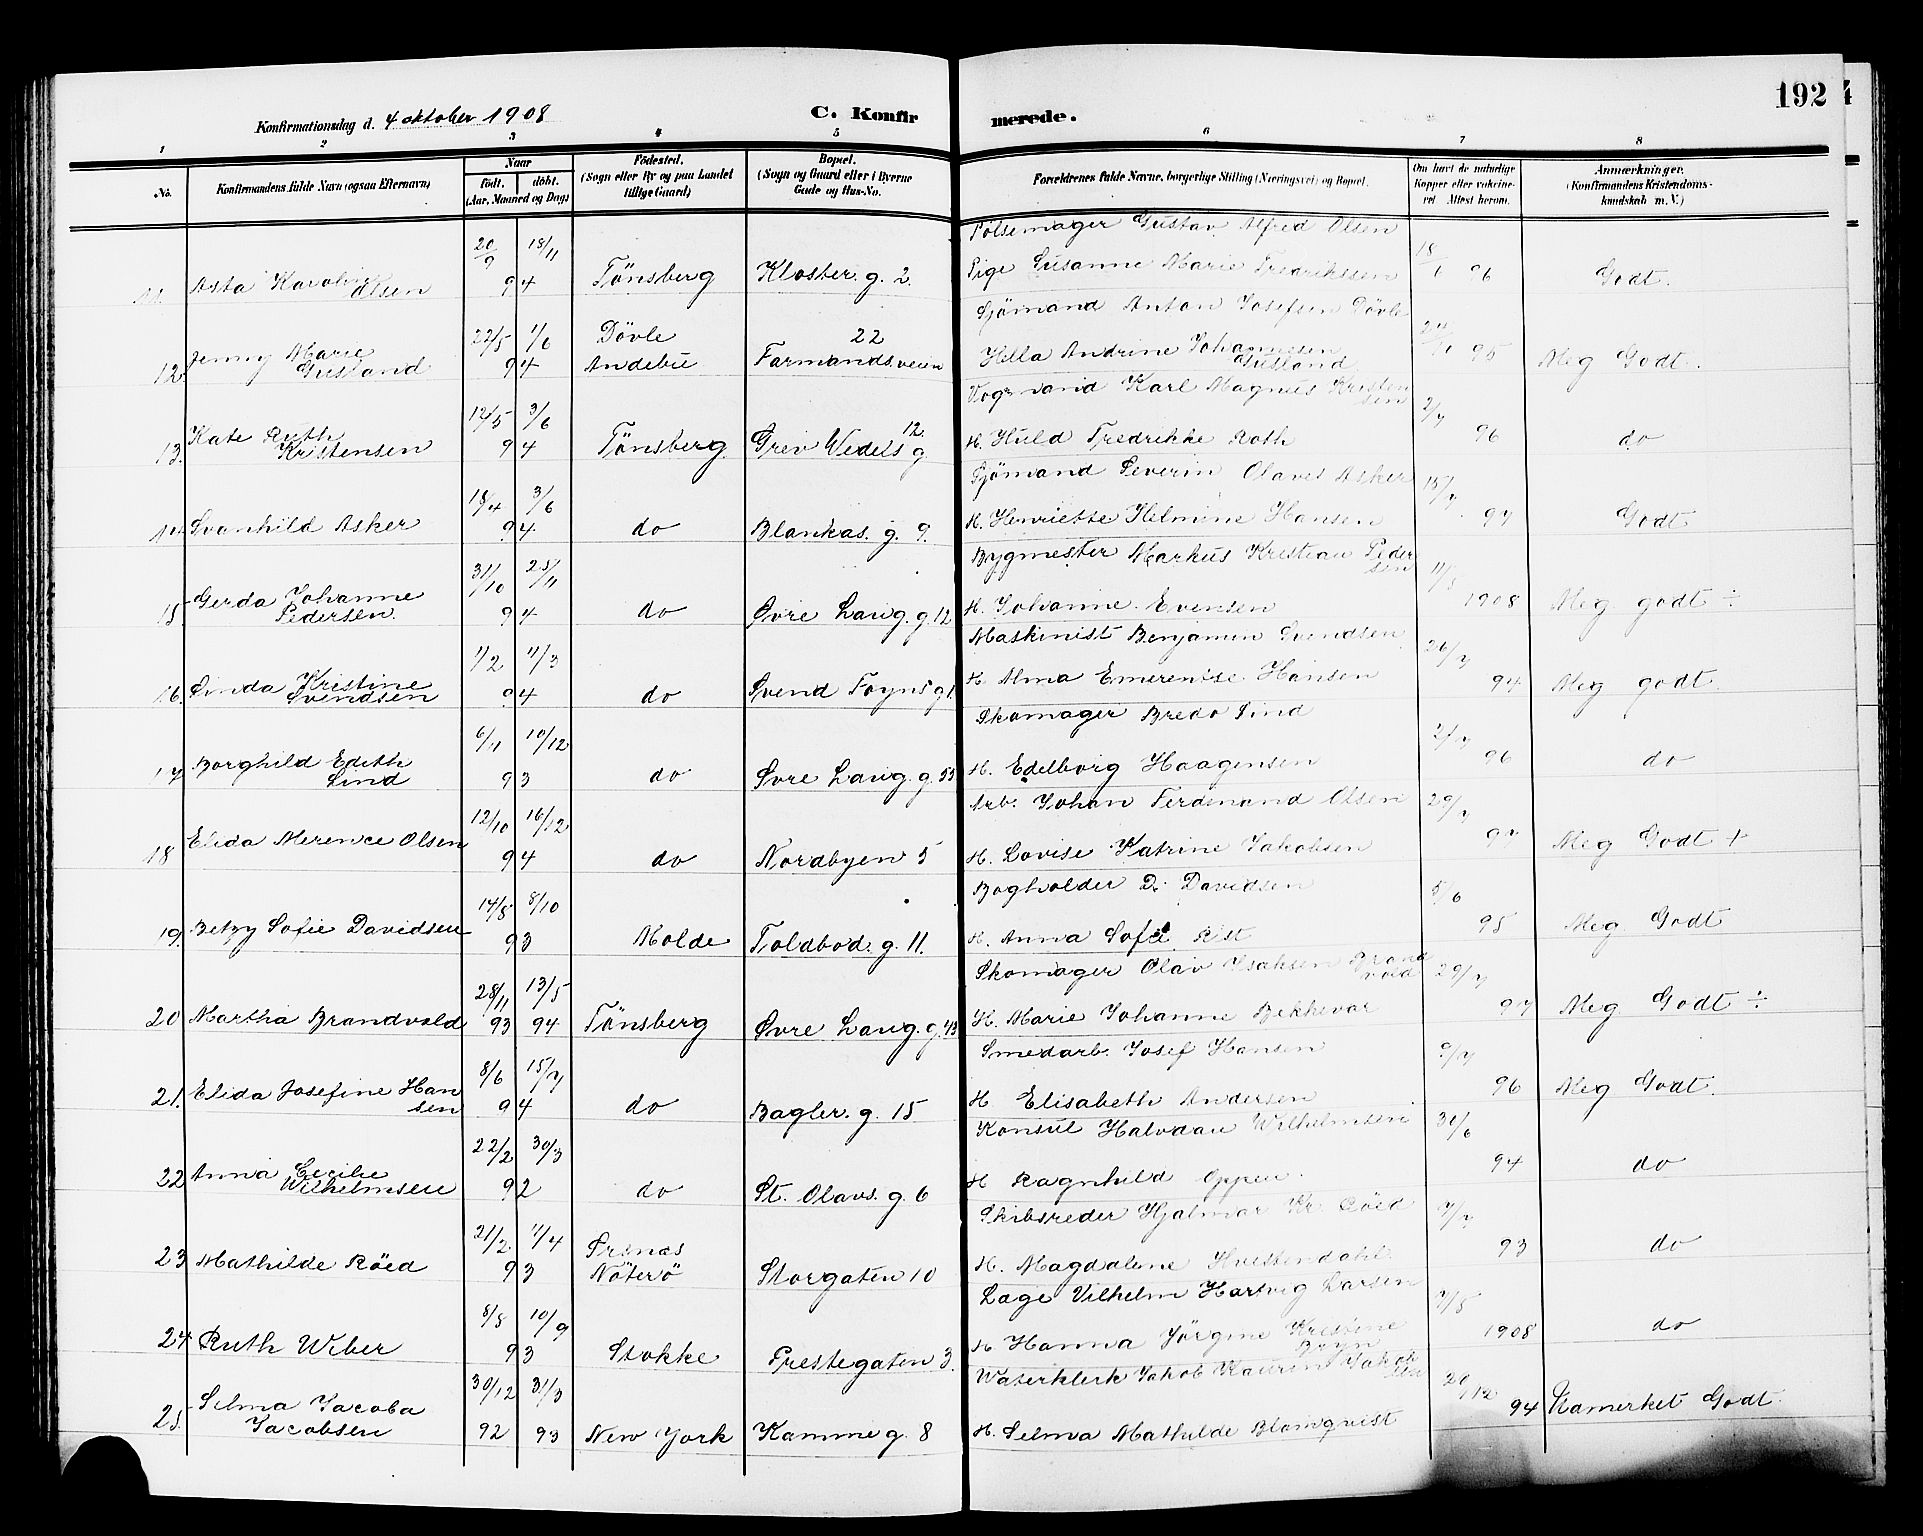 192
Konfirmationsdag d. 4 oktober 1908
C. Konfirmerede.
1 2 3 4 5 6 7 8
No. Konfirmandens fulde Navn (ogsaa Efternavn) Naar født. døbt. (Aar, Maaned og Dag) Födested. (Sogn eller By og paa Landet tillige Gaard) Bopæl. (Sogn og Gaard eller i Byerne Gade og Hus-No. Forældrenes fulde Navne, borgerlige Stilling (Næringsvei) og Bopæl. Om havt de naturlige Kopper eller vakcineret. Attest herom. Anmærkninger. (Konfirmandens Kristendomskundskab m. V.)
20/9 18/11 Pölsemager Gustav Alfred Olsen 18/1
11 Asta Karoline Olsen 94 Tönsberg Kloster. g. 2. Pige Susanne Marie Fredrikssen 96 Godt.
22/5 1/6 Dövle 22 Sjömand Anton Josefsen Dövle
12. Jenny Marie Gusland 94 Andebu Farmandsveien Hella Andrine Johannesen Gusland 95 Meg Godt.
12/5 3/6 12. Vognmand Karl Magnus Kristensen 2/7
13. Kate Ruth Kristensen 94 Tönsberg Grev Wedels g. H. Huld Fredrikke Roth 96 do
18/4 3/6 Sjömand Severin Olaves Asker 15/7
14 Svanhild Asker 94 do Blankas. g. 9. H. Henriette Helmine Hansen 97 Godt
31/10 25/11 Bygmester Markus Kristian Pedersen 11/5
15. Gerda Johanne Pedersen. 94 do Øvre Lang. g. 12 H. Johanne Evensen 1908 Meg godt ÷
1/2 11/3 Maskinist Benjamin Svendsen 26/7
16. Sinda Kristine Svendsen 94 do Svend Foyns g 1. H. Alma Emerentse Hansen 94 Meg godt.
6/11 10/12 Skomager Bredo Lind 2/7
17 Borghild Edith Lind 93 do Øvre Lang. g. 55 H. Edelborg Haagensen 96 do
12/10 16/12 Arb. Johan Ferdinand Olsen 29/7
18 Elida Merence Olsen 94 do Nordbyen 5 H. Lovise Katrine Jakobsen 97 Meg Godt +
14/8 8/10 Bogholder D. Davidsen 5/6
19. Betzy Sofie Davidsen 93 Molde Toldbod. g. 11. H. Anna Sofie Rist 95 Meg Godt
28/11 13/5 Skomager Olav Isaksen Brandvold 29/7
20 Martha Brandvold 93 94 Tönsberg Øvre Lang. g. 43 H. Marie Johanne Bekkevar 97 Meg Godt ÷
8/6 15/7 Smedarb. Josef Hansen 9/7
21. Elida Josefine Hansen 94 do Bagler. g. 15 H Elisabeth Andersen 96 Meg Godt.
22/2 30/3 Konsul Halvdan Wilhelmsen 30/6
22 Anna Cecilie Wilhelmsen 92 do St. Olavs. g. 6 H Ragnhild Oppen. 94 do
21/2 4/4 Smidsrød Skibsreder Hjalmar Kr. Röed 7/7
23 Mathilde Röed 93 Nöterö Storgaten 10 H. Magdalene Hvistendahl. 93 do
8/8 10/9 Læge Vilhelm Hartvig Larsen 7/5
24 Ruth Wiber 93 Stokke Prestegaten 3. H Hanna Jörgine Kristine Bryn 1908 do
30/12 31/3 Waterklerk Jakob Kaurin Jakobsen 20/12
25. Selma Jacoba Jacobsen 92 93 New York Kamme g. 8 H. Selma Mathilde Blomqvist 94 Udmerket Godt.